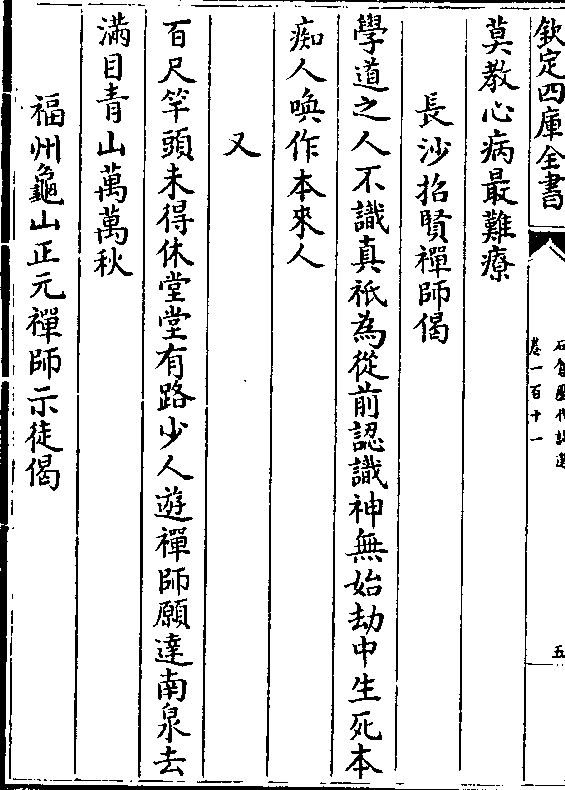 欽定四庫全書
石倉歷代詩選
卷一百十一
五
莫教心病最難療
長沙招賢禪師偈
學道之人不識真祇為從前認識神無始劫中生死本
痴人喚作本來人
又
百尺竿頭未得休堂堂有路少人遊禪師願達南泉去
滿目青山萬萬秋
福州龜山正元禪師示徒偈